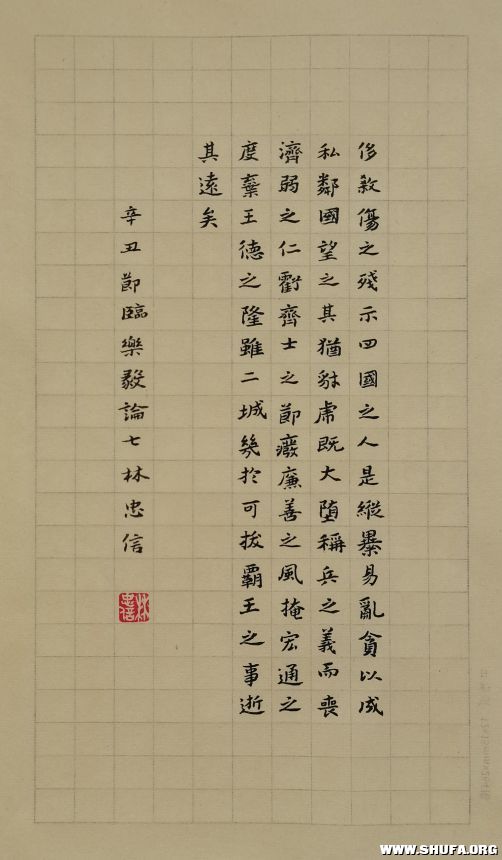 侈殺傷之殘示四國之人是縱暴易亂貪以成
私鄰國望之其猶豺虎既大墮稱兵之義而喪
濟弱之仁虧齊士之節廢廉善之風掩宏通之
度棄王德之隆雖二城幾於可拔覇王之事逝
其遠矣
辛丑節臨樂毅論七林忠信
林忠信
WWW.SHUFA.ORG